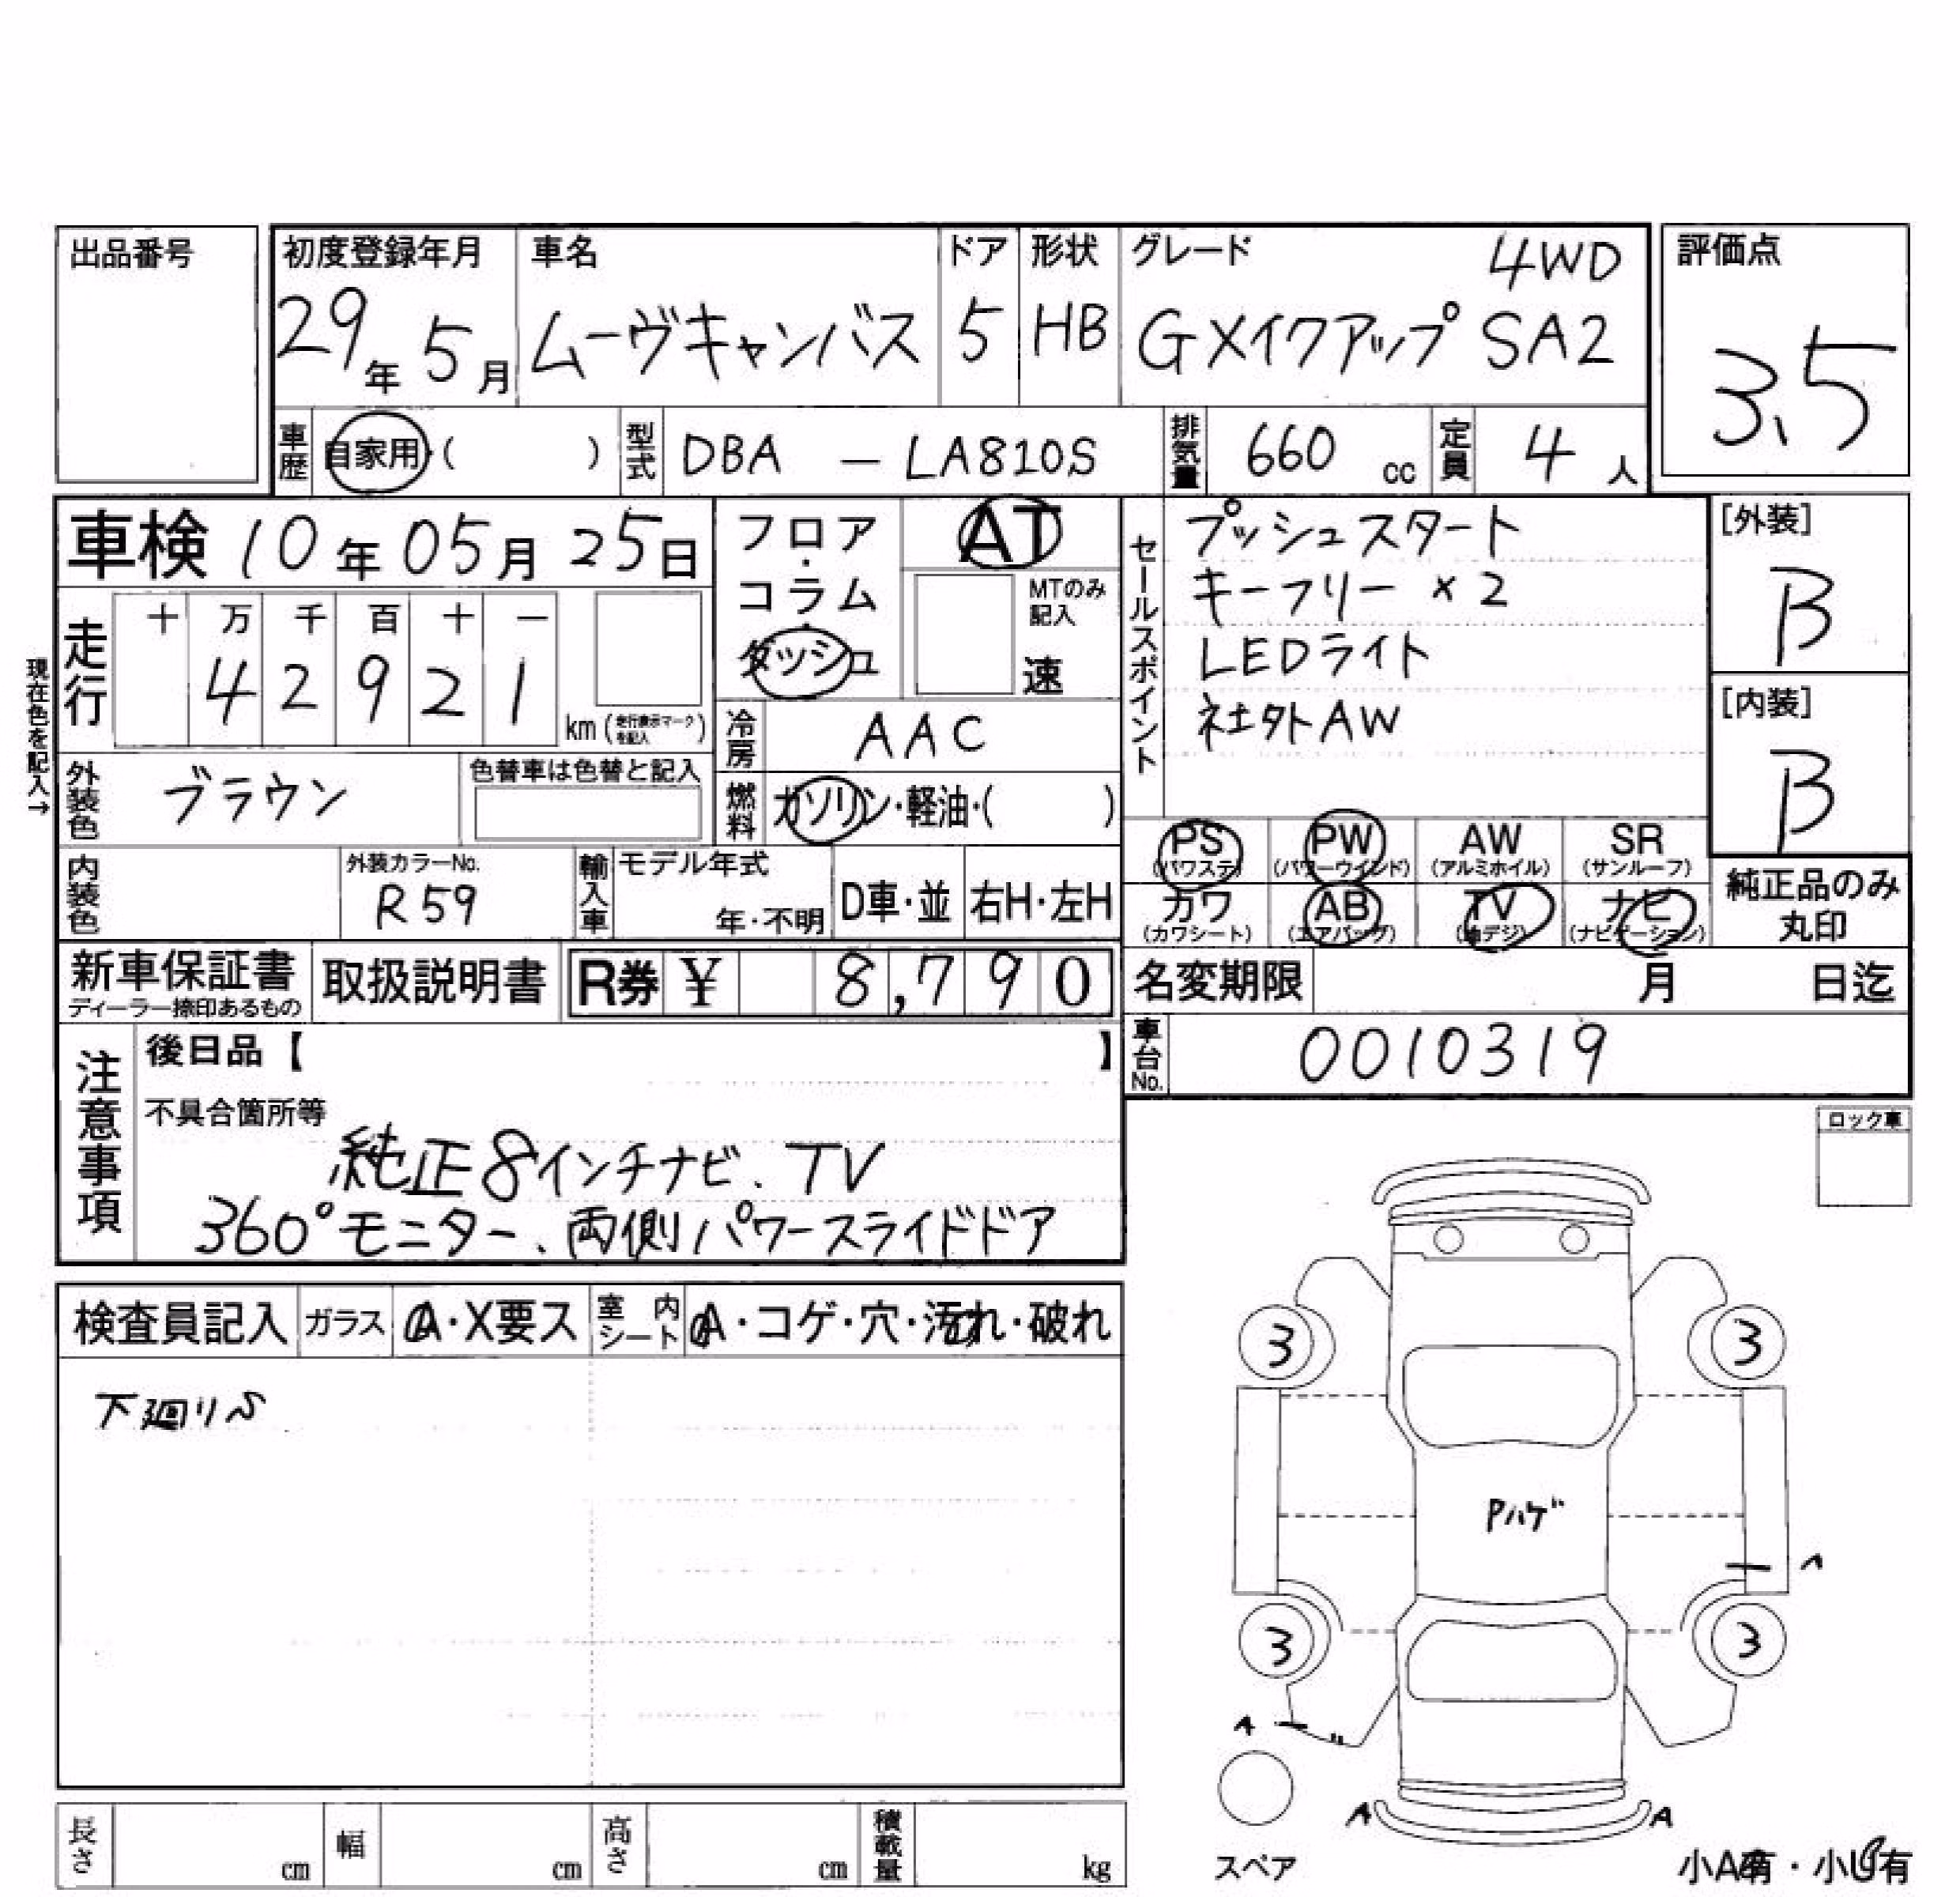 出品番号
初度登録年月 車名 ドア 形状 グレード 4WD 評価点
29年5月 ムーヴキャンバス 5 HB GXイクアップ SA2 3.5
車歴 自家用・( ) 型式 DBA - LA810S 排気量 660 cc 定員 4 人
車検 10年05月25日
フロア・コラム・ダッシュ
AT
MTのみ記入
速
セールスポイント
プッシュスタート
キーフリー×2
LEDライト
社外AW
[外装]
B
[内装]
B
現在色を記入→
走行 十 万 千 百 十 一
4 2 9 2 1 km (走行表示マークを記入)
冷房 AAC
外装色 ブラウン 色替車は色替と記入
燃料 ガソリン・軽油・( )
PS (パワステ) PW (パワーウインド) AW (アルミホイル) SR (サンルーフ)
内装色 外装カラーNo. R59 輸入車 モデル年式 年・不明 D車・並 右H・左H
カワ (カワシート) AB (エアバッグ) TV (地デジ) ナビ (ナビゲーション)
純正品のみ丸印
新車保証書 ディーラー捺印あるもの 取扱説明書 R券 ¥ 8,790
名変期限 月 日迄
車台No. 0010319
注意事項
後日品【 】
不具合箇所等
純正8インチナビ、TV
360°モニター、両側パワースライドドア
ロック車
検査員記入 ガラス A・X要ス 室内シート A・コゲ・穴・汚れ・破れ
下廻りS
3 3
Pハゲ
3 3
A
A A
スペア
小A有・小U有
長さ cm 幅 cm 高さ cm 積載量 kg